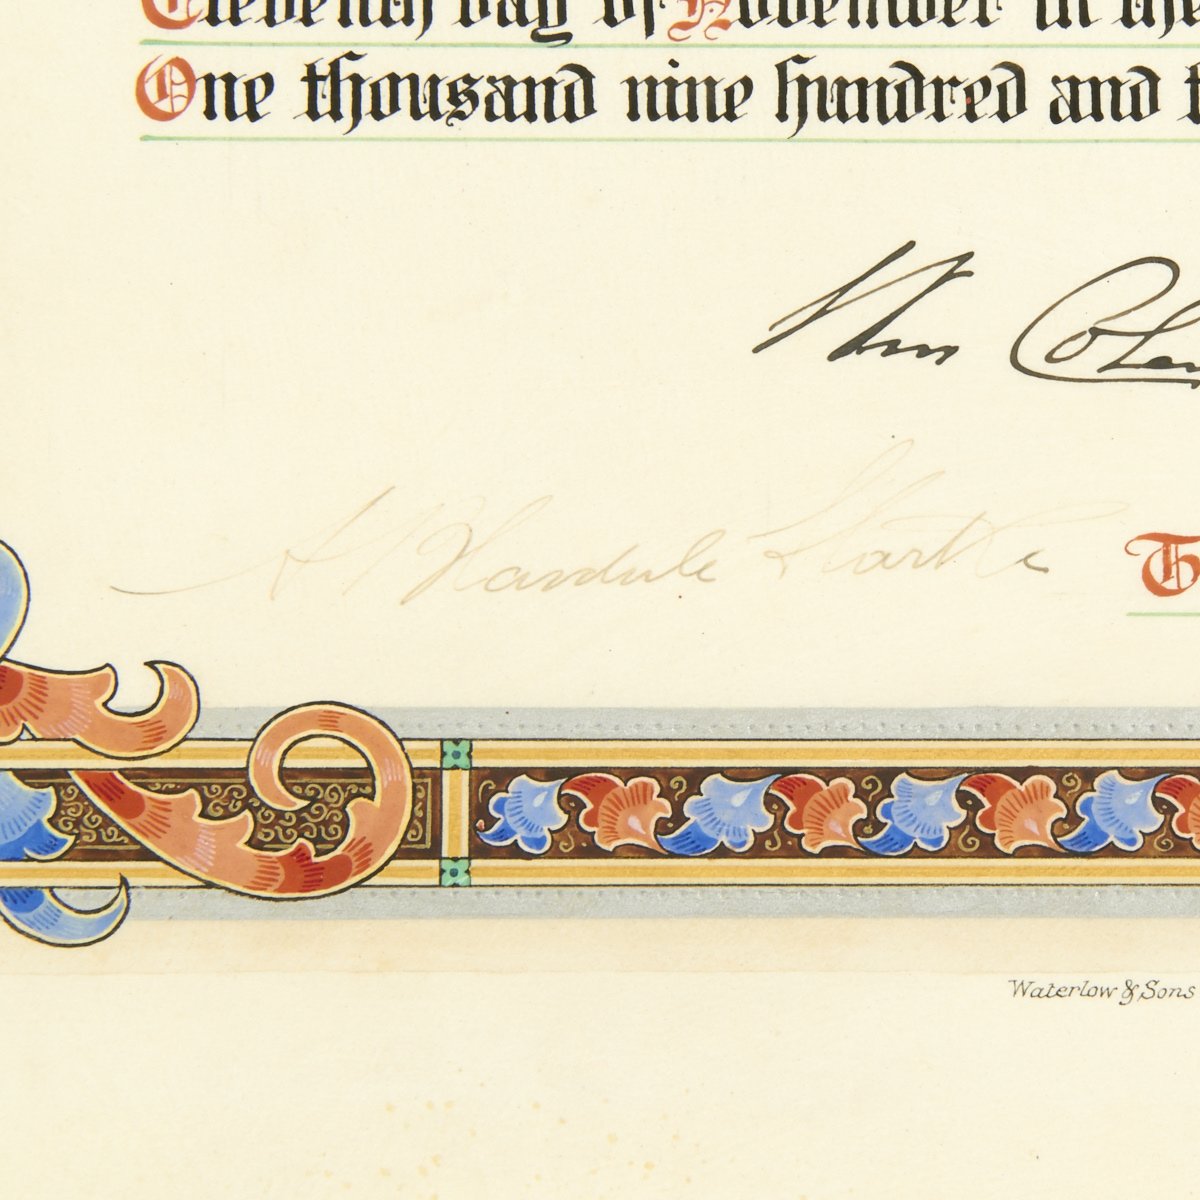 Eleventh day of November in the
One thousand nine hundred and t
Wm Cohen
T
Waterlow & Sons